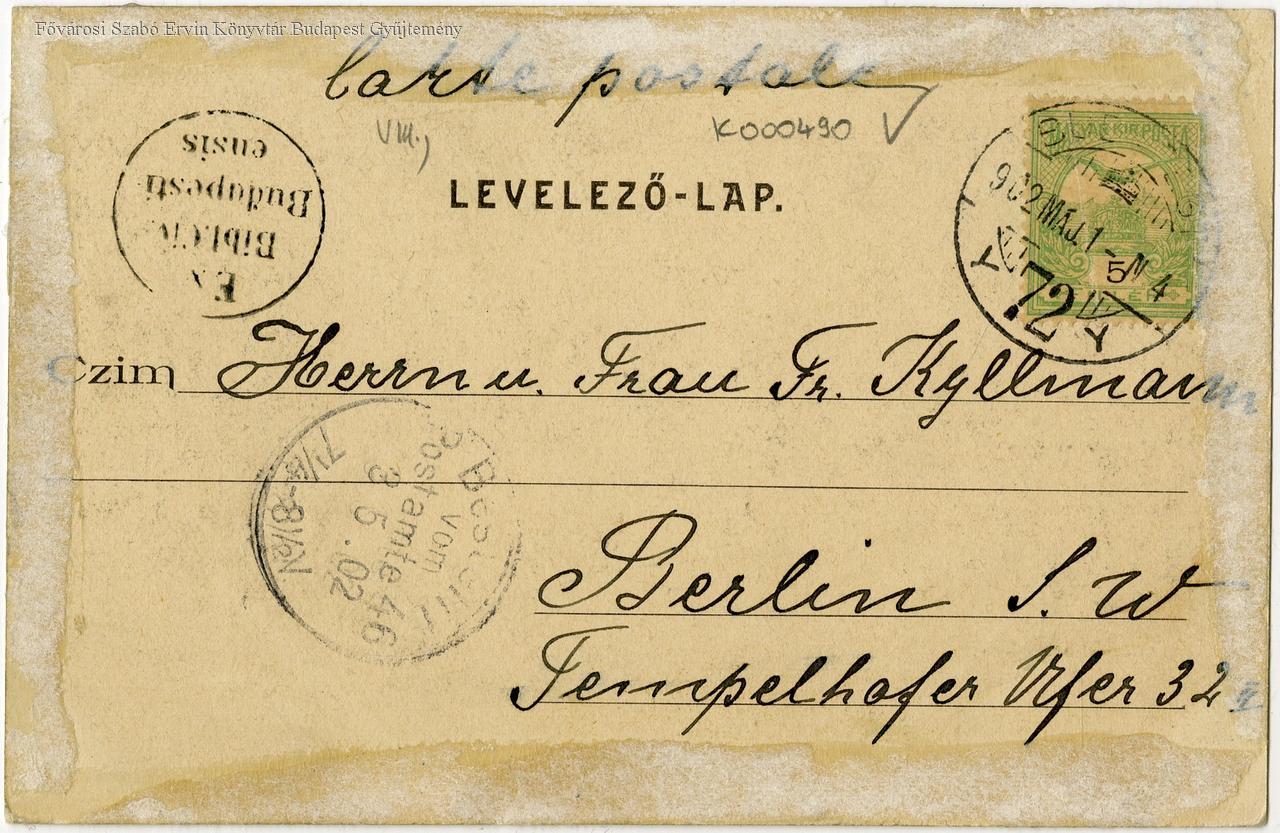 Fővárosi Szabó Ervin Könyvtár Budapest Gyűjtemény
Carte postale
VIII.,
K000490 V
LEVELEZŐ-LAP.
Ex
Bibl. Civ.
Budapesti
ensis
MAGYAR KIR. POSTA
902 MÁJ. 1 - N 4
72
5
Czim Herrn u. Frau Fr. Kyllmann
Bestellt
vom
Postamte 46
3 5. 02
7½-8½N
Berlin S. W
Tempelhofer Ufer 32 I